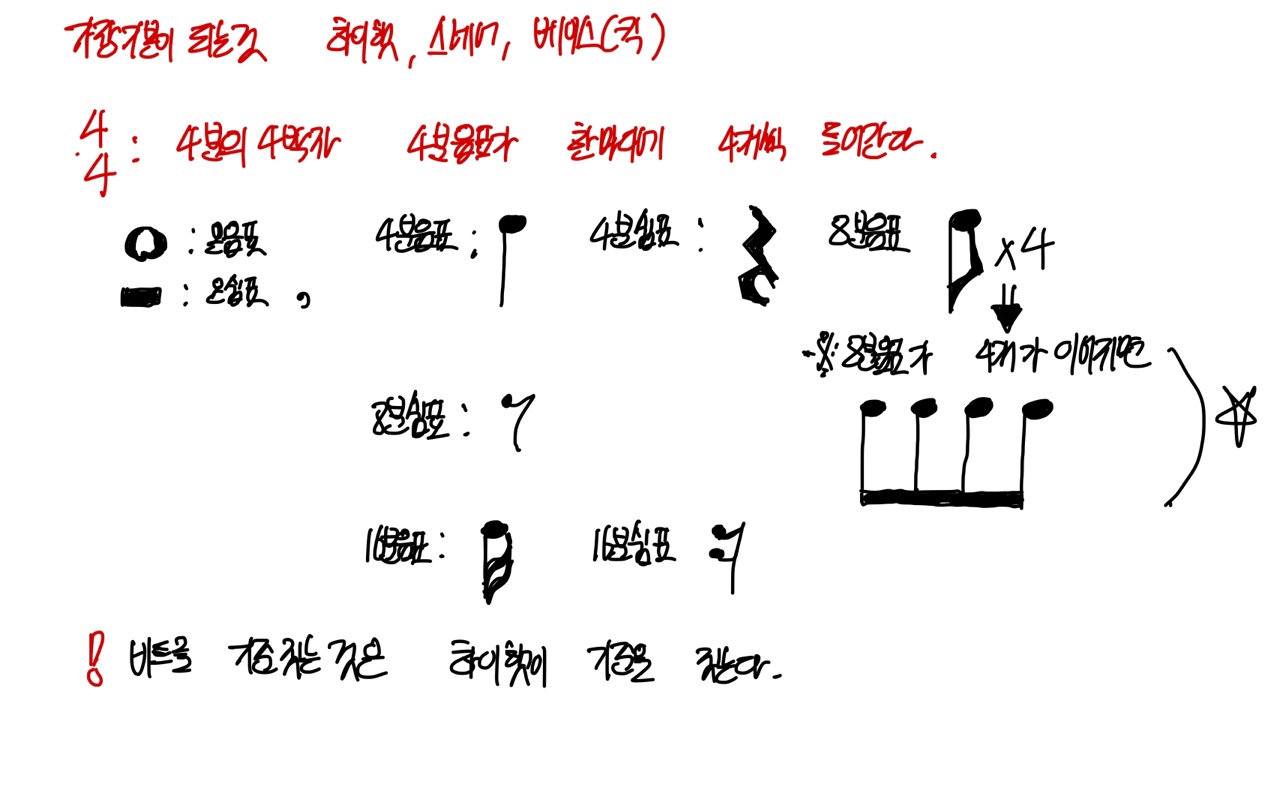 가장 기본이 되는 것 하이햇, 스네어, 베이스(킥)
4/4 : 4분의 4박자 4분음표가 한마디에 4개씩 들어간다.
: 온음표 4분음표 : 4분쉼표 : 8분음표 x4
: 온쉼표 ,
※: 8분음표가 4개가 이어지면
8분쉼표 :
16분음표 : 16분쉼표
! 비트를 기준 잡는 것은 하이햇이 기준을 잡는다.